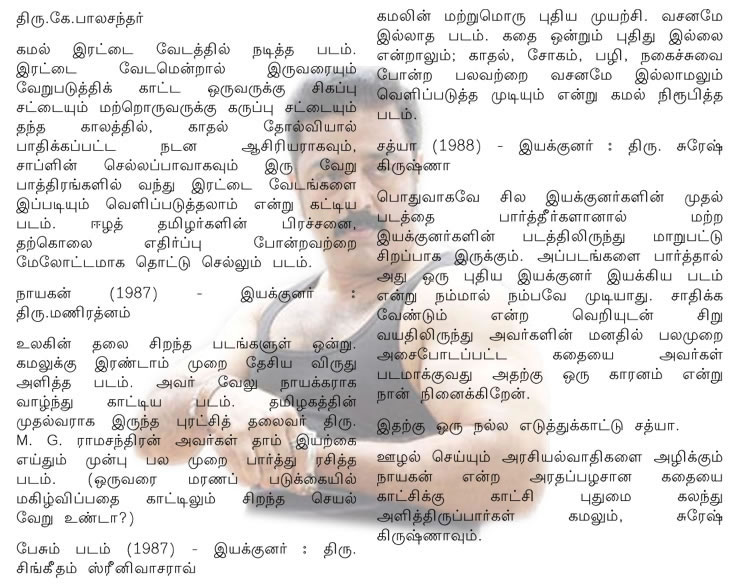 திரு.கே.பாலசந்தர்
கமல் இரட்டை வேடத்தில் நடித்த படம்.
இரட்டை வேடமென்றால் இருவரையும்
வேறுபடுத்திக் காட்ட ஒருவருக்கு சிகப்பு
சட்டையும் மற்றொருவருக்கு கருப்பு சட்டையும்
தந்த காலத்தில், காதல் தோல்வியால்
பாதிக்கப்பட்ட நடன ஆசிரியராகவும்,
சாப்ளின் செல்லப்பாவாகவும் இரு வேறு
பாத்திரங்களில் வந்து இரட்டை வேடங்களை
இப்படியும் வெளிப்படுத்தலாம் என்று கட்டிய
படம். ஈழத் தமிழர்களின் பிரச்சனை,
தற்கொலை எதிர்ப்பு போன்றவற்றை
மேலோட்டமாக தொட்டு செல்லும் படம்.
நாயகன் (1987) - இயக்குனர் :
திரு.மணிரத்னம்
உலகின் தலை சிறந்த படங்களுள் ஒன்று.
கமலுக்கு இரண்டாம் முறை தேசிய விருது
அளித்த படம். அவர் வேலு நாயக்கராக
வாழ்ந்து காட்டிய படம். தமிழகத்தின்
முதல்வராக இருந்த புரட்சித் தலைவர் திரு.
M. G. ராமசந்திரன் அவர்கள் தாம் இயற்கை
எய்தும் முன்பு பல முறை பார்த்து ரசித்த
படம். (ஒருவரை மரணப் படுக்கையில்
மகிழ்விப்பதை காட்டிலும் சிறந்த செயல்
வேறு உண்டா?)
பேசும் படம் (1987) - இயக்குனர் : திரு.
சிங்கீதம் ஸ்ரீனிவாசராவ்
கமலின் மற்றுமொரு புதிய முயற்சி. வசனமே
இல்லாத படம். கதை ஒன்றும் புதிது இல்லை
என்றாலும்; காதல், சோகம், பழி, நகைச்சுவை
போன்ற பலவற்றை வசனமே இல்லாமலும்
வெளிப்படுத்த முடியும் என்று கமல் நிரூபித்த
படம்.
சத்யா (1988) - இயக்குனர் : திரு. சுரேஷ்
கிருஷ்ணா
பொதுவாகவே சில இயக்குனர்களின் முதல்
படத்தை பார்த்தீர்களானால் மற்ற
இயக்குனர்களின் படத்திலிருந்து மாறுபட்டு
சிறப்பாக இருக்கும். அப்படங்களை பார்த்தால்
அது ஒரு புதிய இயக்குனர் இயக்கிய படம்
என்று நம்மால் நம்பவே முடியாது. சாதிக்க
வேண்டும் என்ற வெறியுடன் சிறு
வயதிலிருந்து அவர்களின் மனதில் பலமுறை
அசைபோடப்பட்ட கதையை அவர்கள்
படமாக்குவது அதற்கு ஒரு காரணம் என்று
நான் நினைக்கிறேன்.
இதற்கு ஒரு நல்ல எடுத்துக்காட்டு சத்யா.
ஊழல் செய்யும் அரசியல்வாதிகளை அழிக்கும்
நாயகன் என்ற அரதப்பழசான கதையை
காட்சிக்கு காட்சி புதுமை கலந்து
அளித்திருப்பார்கள் கமலும், சுரேஷ்
கிருஷ்ணாவும்.